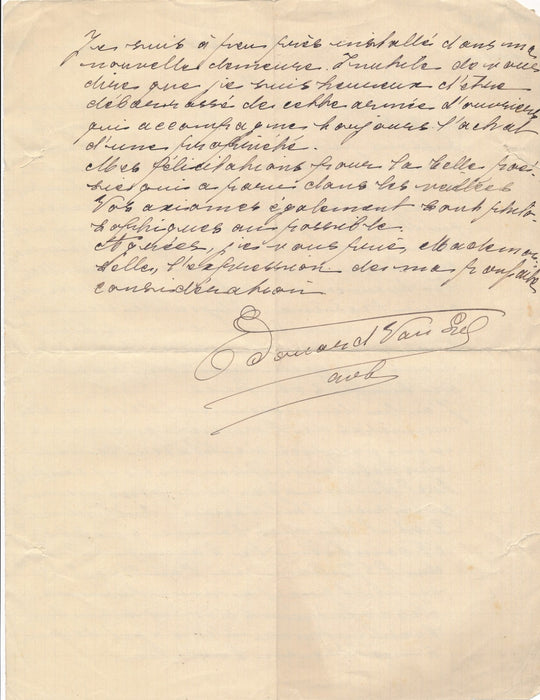 Je suis à peu près installé dans ma
nouvelle demeure. Inutile de vous
dire que je suis heureux d'être
débarrassé de cette armée d'ouvriers
qui accompagne toujours l'achat
d'une propriété.
Mes félicitations pour la belle poé-
sie qui a paru dans les
Vos axiomes également sont philo-
sophiques au possible.
Agréez, je vous prie, Mademoi-
selle, l'expression de ma parfaite
considération
Edouard Van